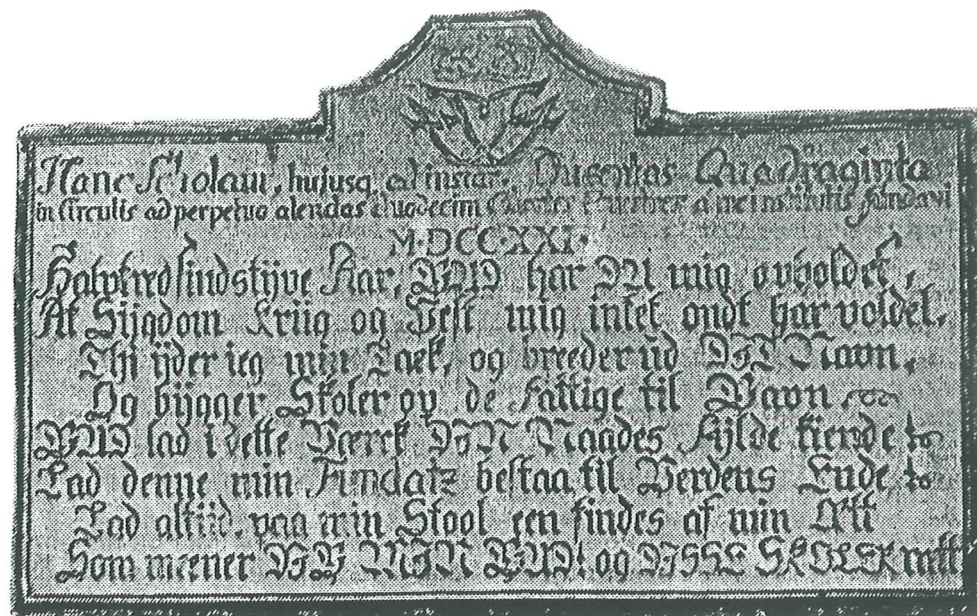 Hanc Scholam, hujusq ad instar, Ducentas Quadraginta
in Circulis ad perpetuo alendas Duodecim Equestres a me institutis fundavi
M·DCC·XXI·
Halvfierdsindstÿve Aar, GUD har DU mig opholdet,
At Sÿgdom Kriig og Pest mig intet ondt har voldet,
Thi ÿder ieg min Tack, og breeder ud DIT Navn,
Og bÿgger Skoler op de Fattige til Gavn
GUD lad i dette Værck DIN Naades Fÿlde kiende
Lad denne min Fundatz bestaa til Verdens Ende
Lad altiid paa min Skool een findes af min Ætt
Som meener DIG MIN GUD! og DISSE SKOLER rætt